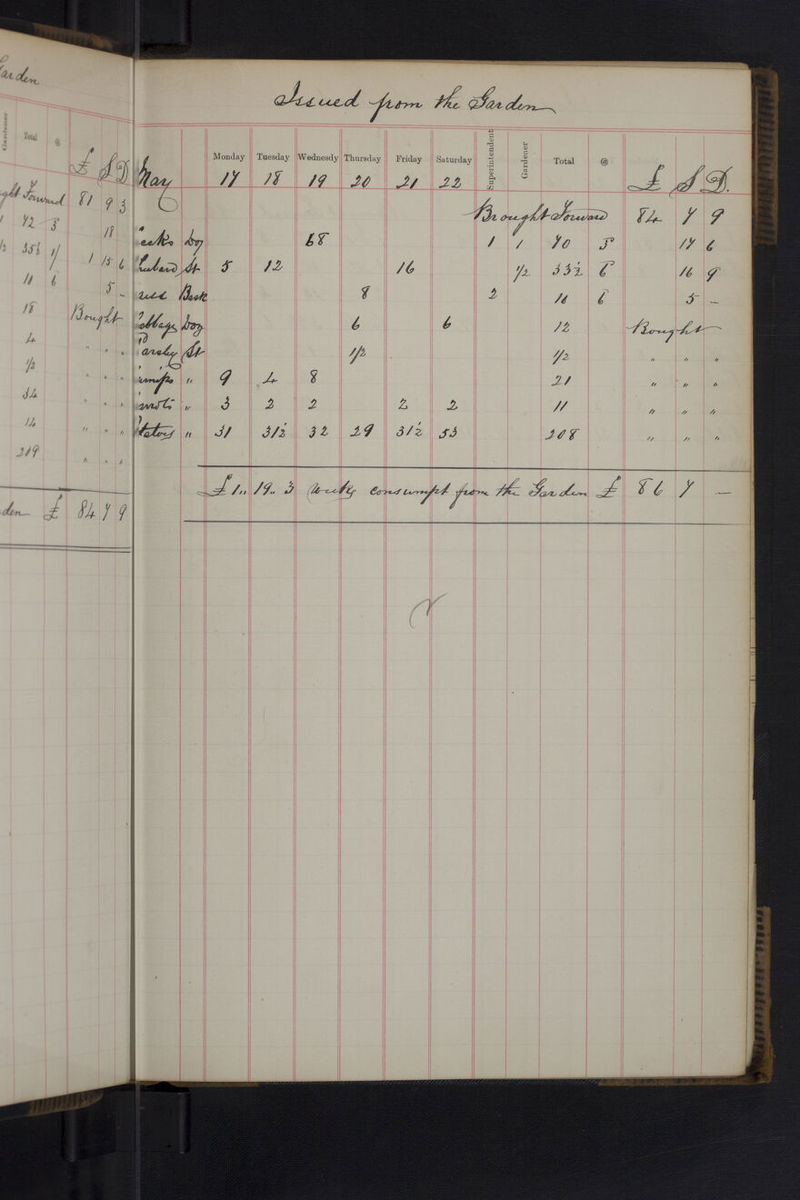 Garden
Gardener Total @ £ S D
ght Forward 81 9 3
1 72 3 18
½ 35½ 1/ 1 15 6
10 6 5 -
18 Bought
4 " " "
½ " " "
34 " " "
14 " " "
209 " " "
den £ 84 7 9
Issued from the Garden
May Monday Tuesday Wednesdy Thursday Friday Saturday Superintendent Gardener Total @ £ S D.
17 18 19 20 21 22
Brought Forward 84 7 9
eeks Doz 68 1 1 70 3 17 6
hubard St 5 12 16 ½ 33½ 6 16 9
ress Bask 8 2 10 6 5 -
abbage Doz 6 6 12 Bought
Parsley St ½ ½ " " "
urnips " 9 4 8 21 " " "
arrots " 3 2 2 2 2 11 " " "
tatoes " 31 31½ 32 29 31½ 53 208 " " "
£1 " 19 " 3 Weeks consumpt from the Garden £ 86 7 -